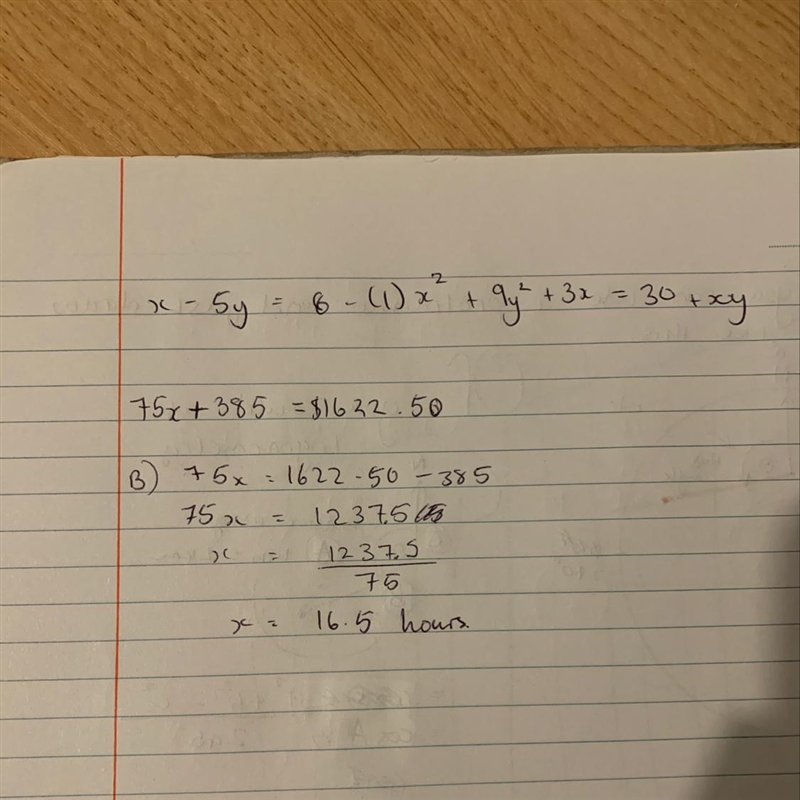 x - 5y = 6 - (1) x² + 9y² + 3x = 30 + xy
75x + 385 = $1622.50
B) 75x = 1622.50 - 385
75x = 1237.5
x = 1237.5 / 75
x = 16.5 hours.